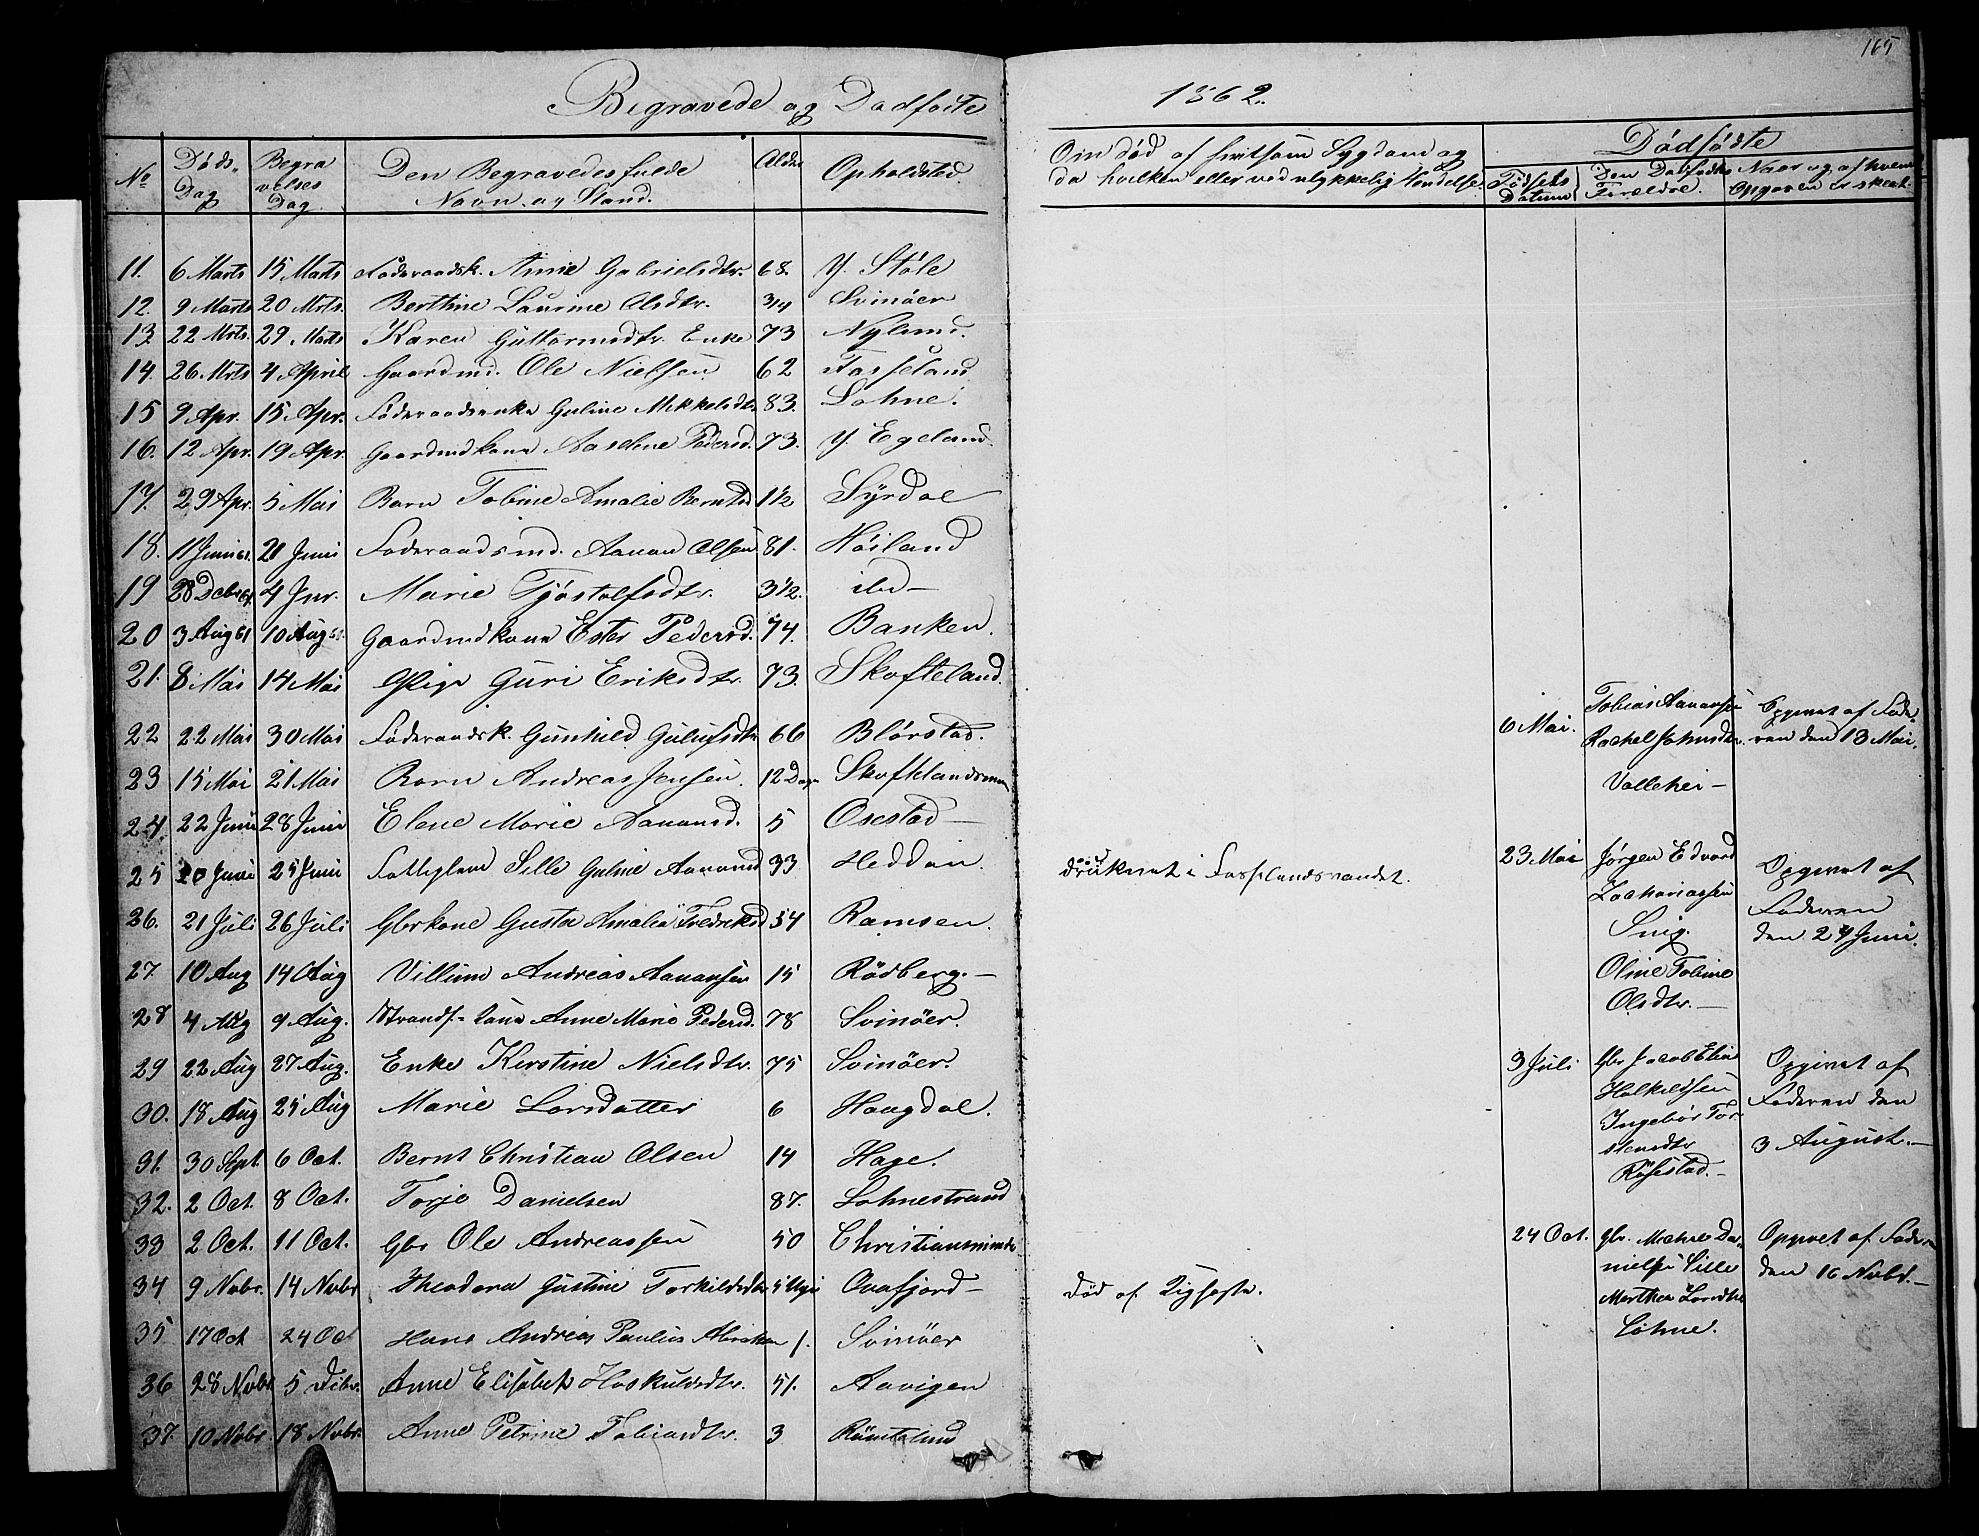 165
Begravede og Dødfødte
1862.
No
Døds Dag
Begravelses Dag
Den Begravedes fulde Navn og Stand.
Alder
Opholdsted.
Om død af smitsom Sygdom og
da hvilken eller ved ulykkelig Hendelse.
Dødfødte
Fødsels Datum
Den Dødfødtes Foreldre.
Naar og af hvem Opgaven er skeet.
11. 6 Marts 15 Marts Føderaadsk. Anne Gabrielsdtr. 68. Y. Støle
12. 9 Marts 20 Mrts. Berthine Laurine Olsdtr. 3/4 Svinöer
13 22 Mrts. 29 Marts Karen Guttormsdtr. Enke 73 Nylund.
14. 26 Mrts 4 April Gaardmd. Ole Nielsen 62 Fasseland
15 9 Apr. 15 Apr. Føderaadsenke Guline Mikkelsdtr. 83. Lohne.
16. 12 Apr. 19 Apr. Gaardmdkone Aaselene Pedersd. 73. Y. Egeland.
17. 29 Apr. 5 Mai Barn Tobine Amalie Berntsd 1 1/2 Syrdal
18. 11 Juni 61. 21 Juni Føderaadsmd. Aanon Olsen 81. Høiland
19 28 Debr 61. 4 Jnr. Marie Tjöstolfsdtr. 3 1/2. ibd -
20 3 Aug 61 10 Aug 61. Gaardmdkone Ester Pedersd. 74. Banken.
21. 8 Mai 14 Mai Guri Eriksdtr. 73. Skofteland.
22 22 Mai 30 Mai Føderaadsk. Gunhild Gulufsdtr 66 Blørstad.
23 15 Mai 21 Mai Barn Andreas Jensen. 12 Dage Skoftelandsmoen
24. 22 Juni 28 Juni Elene Marie Aanonsd. 5 Osestad -
25 20 Juni 25 Juni Fattiglem Sille Guline Aanonsd 33 Heddan.
druknet i Fasselandsvandet.
26. 21 Juli 26 Juli Gbrkone Gusta Amalia Fredriksd 54 Ramsen.
27. 10 Aug 14 Aug Villum Andreas Aanonsen 15 Rödberg. -
28 4 Aug 9 Aug. Anne Marie Pedersd. 78 Svinöer.
29 22 Aug 27 Aug. Enke Kirstine Nielsdtr. 75 Svinöer.
30. 18 Aug 25 Aug Marie Larsdatter 6 Haagdal.
31. 30 Sept. 6 Oct. Bernt Christian Olsen 14 Hage.
32. 2 Oct. 8 Oct. Torjo Danielsen 87. Lohnestrand
33 2 Oct. 11 Oct. Gbr Ole Andreassen 50 Christiansminde
34 9 Nobr. 14 Nobr Theodora Gustine Torkildsdtr 5 Uger Ovafjord -
død af
35 17 Oct 24 Oct Hans Andreas Paulius 1. Svinöer
36 28 Nobr 5 Debr. Anne Elisabeth Hoskuldsdtr. 51. Aavigen
37. 10 Nobr. 18 Nobr. Anne Petrine Tobiasdtr. 3
6 Mai.
Tobias Aanonsen
Rachel Johnsdtr.
Vallehei -
Opgivet af Fade-
ren den 13 Mai.
23 Mai
Jørgen Edvard
Zachariassen
Snig.
Oline Tobine
Olsdtr. -
Opgivet af
Faderen
den 24 Juni.
3 Juli
Gbr Jacob Elias
Halkelsen
Ingebor Tor-
stensdtr
Røsestad. -
Opgivet af
Faderen den
3 August. -
24 Oct.
Gbr. Mathis Da-
nielsen Sille
Marthea Larsdtr
Lohne.
Opgivet af Faderen
den 16 Nobr. -